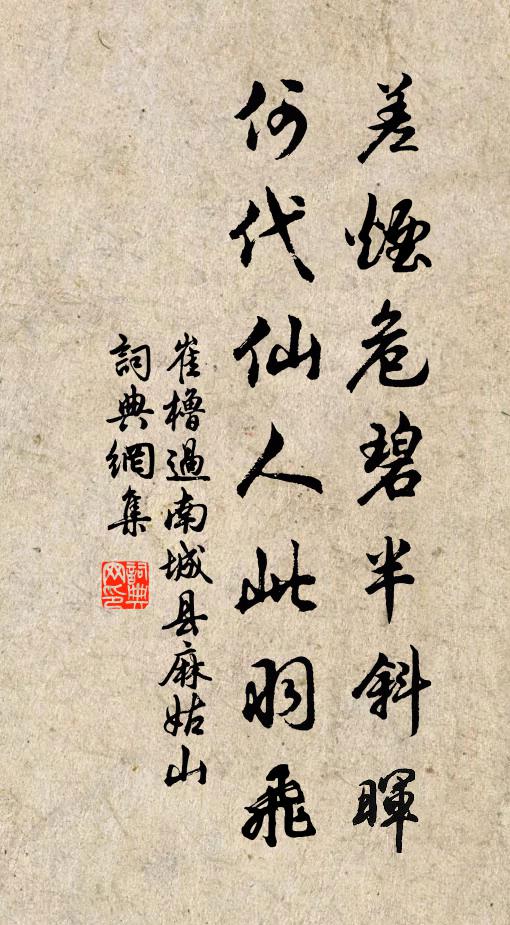 差煙危碧半斜暉
何代仙人此羽飛
崔櫓過南城县麻姑山
詞典網集
詞典网印